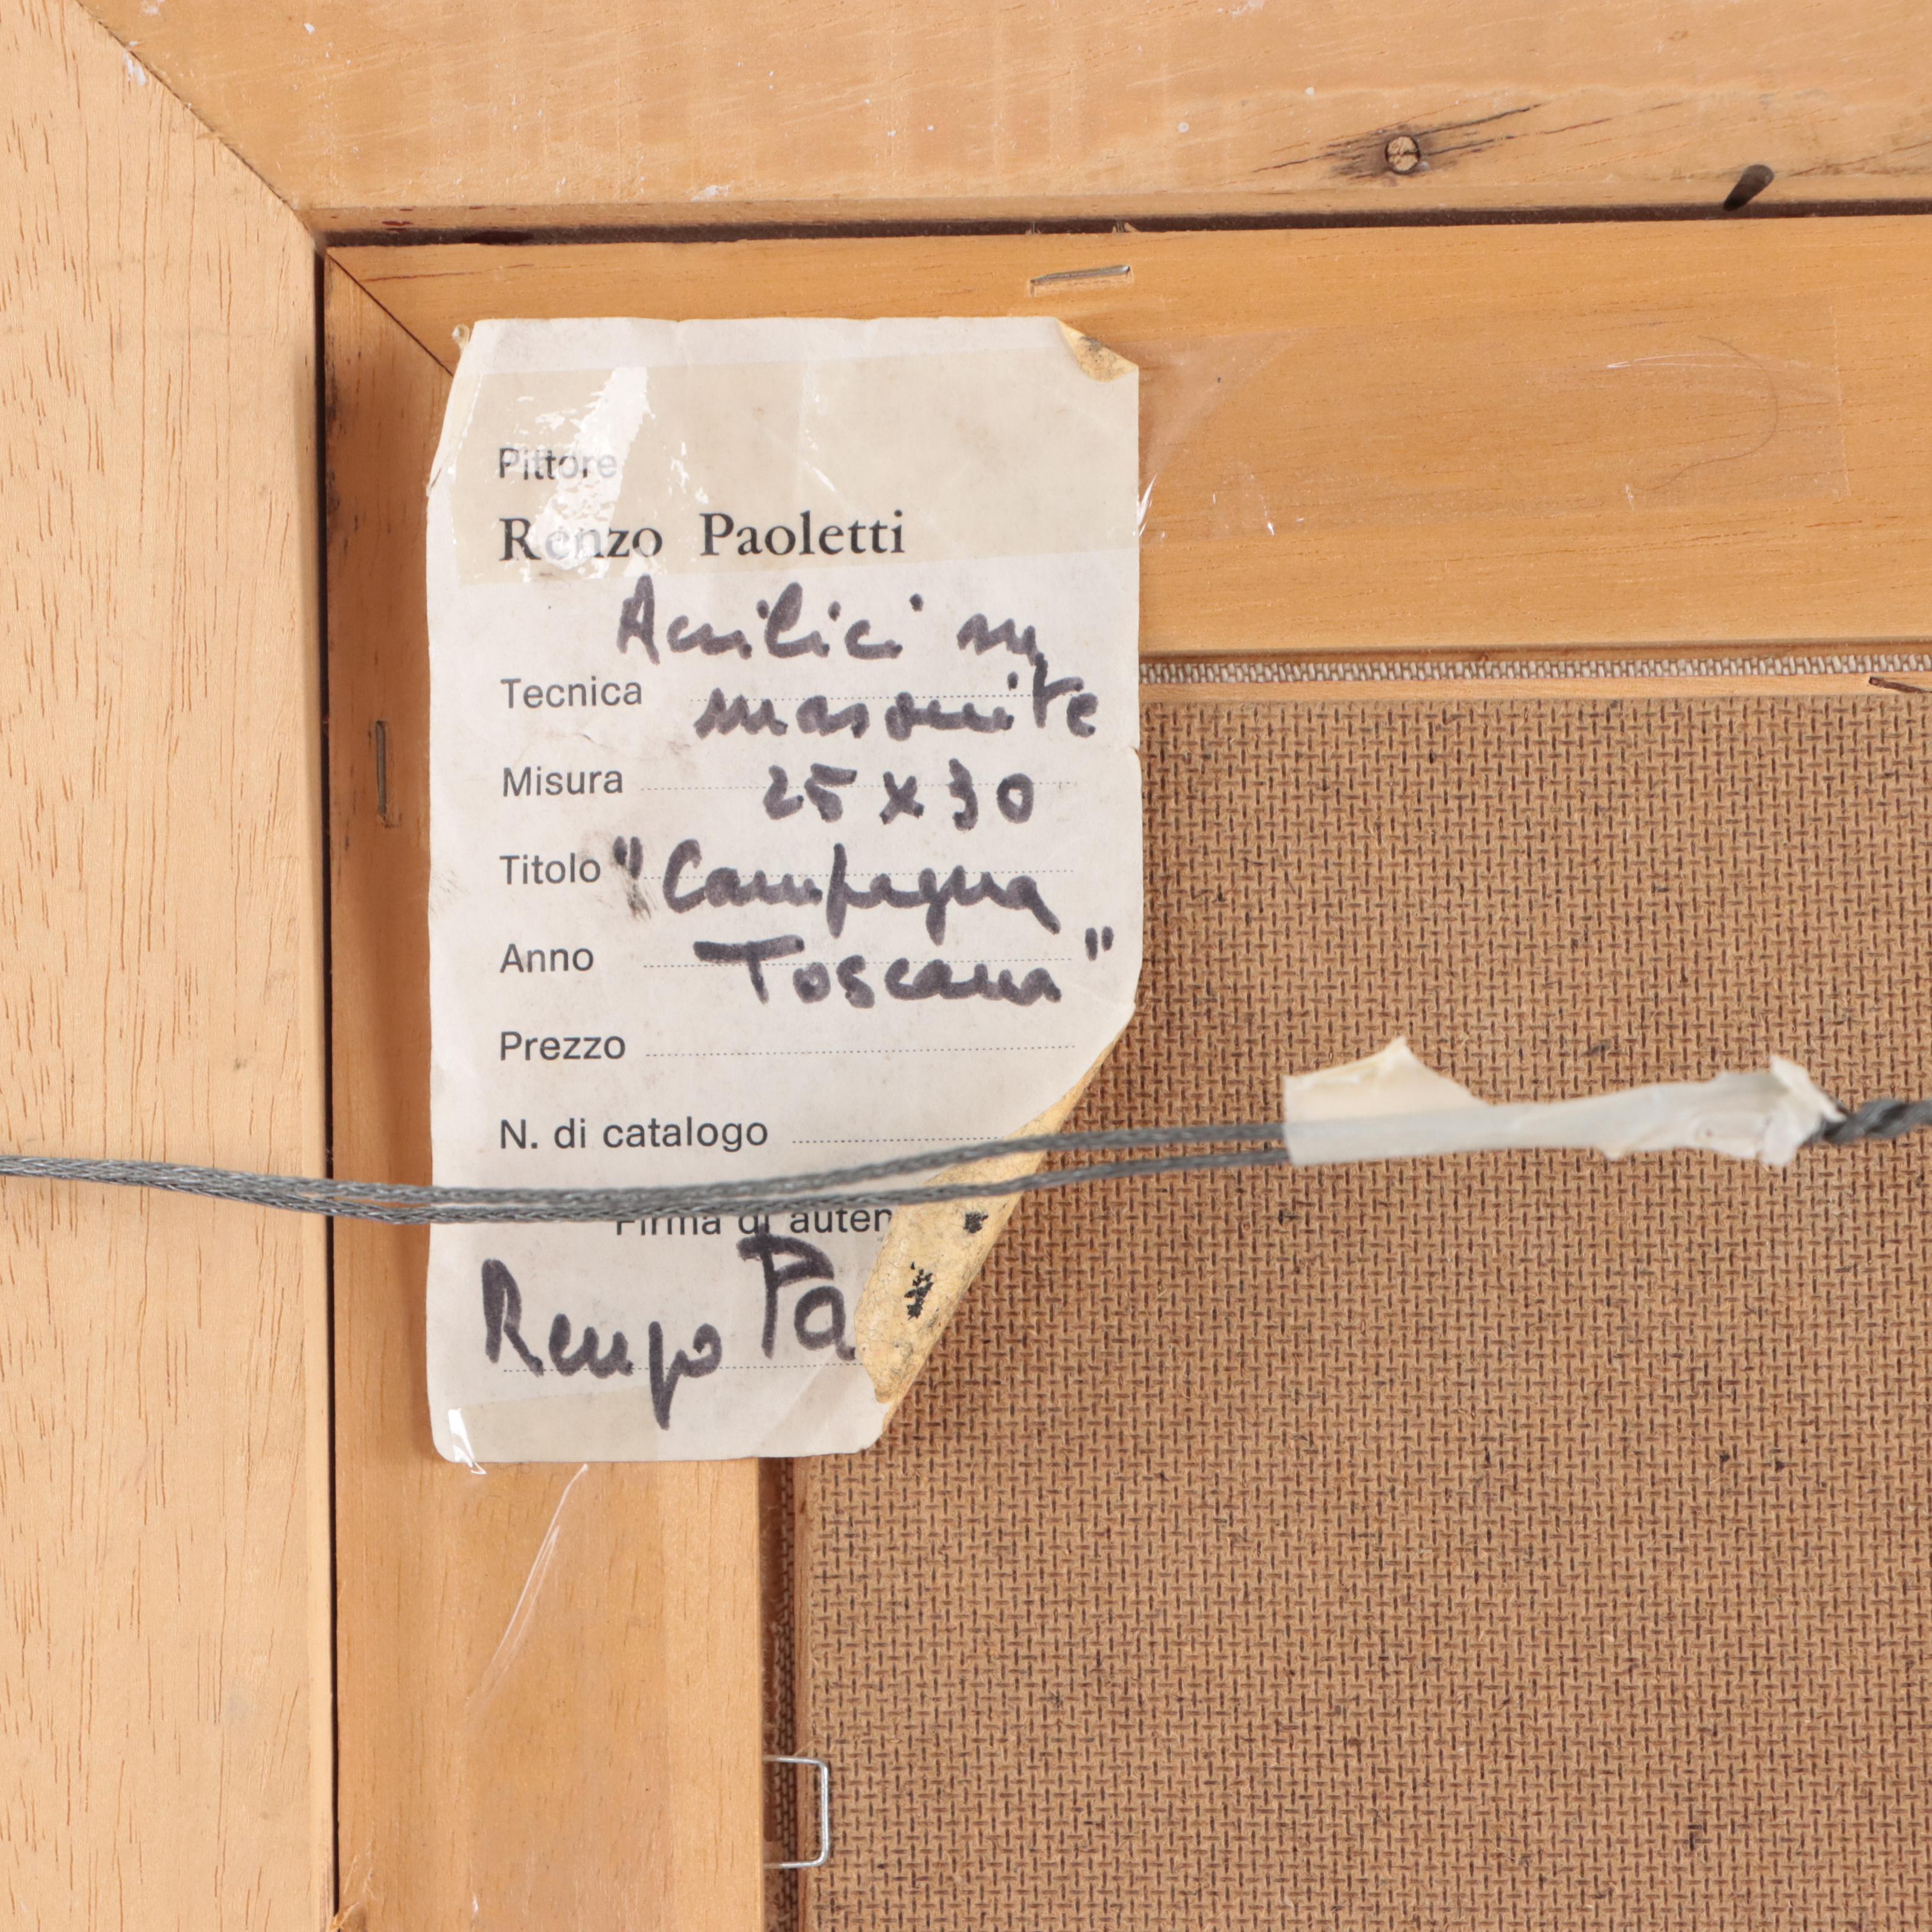 Pittore
Renzo Paoletti
Acrilici su
Tecnica masonite
Misura 25 x 30
Titolo "Campagna
Anno Toscana"
Prezzo
N. di catalogo
Firma di auten
Renzo Pa